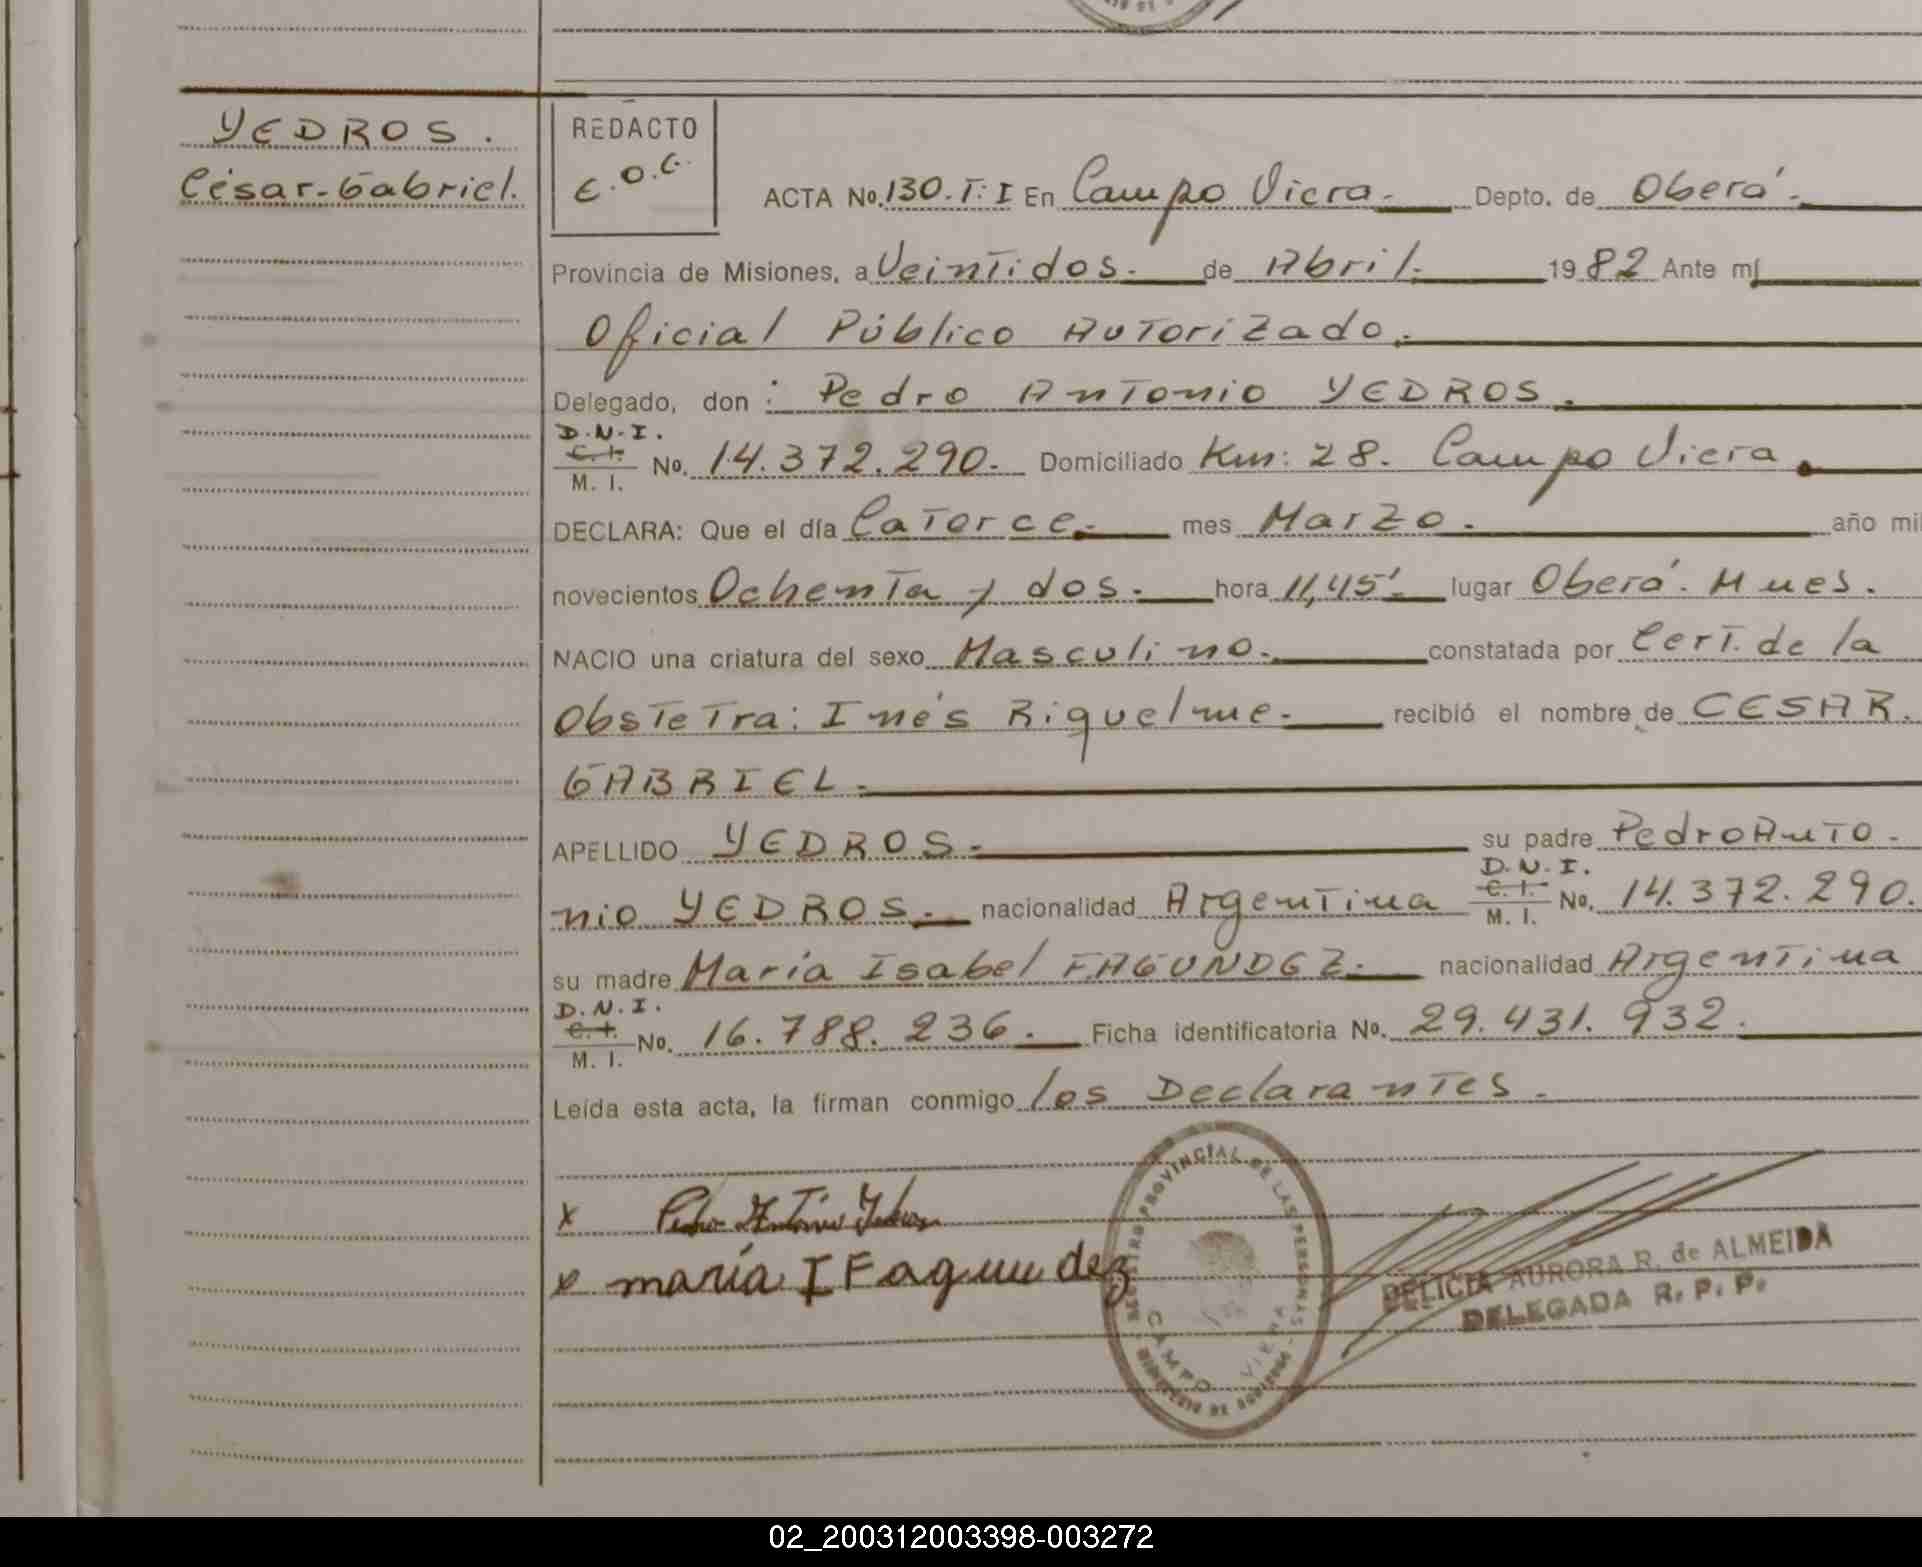 YEDROS.
César-Gabriel.
REDACTO
E.O.G.
ACTA No. 130.T:I En Campo Viera.- Depto. de Oberá.-
Provincia de Misiones, a Veintidos.- de Abril.- 1982 Ante mí
Oficial Público Autorizado.-
Delegado, don : Pedro Antonio YEDROS.
D.N.I.
C. I.
M. I.
No. 14.372.290.- Domiciliado Km: 28. Campo Viera.
DECLARA: Que el día Catorce.- mes Marzo.- año mil
novecientos Ochenta y dos.- hora 11,45'.- lugar Oberá. Mnes.
NACIO una criatura del sexo Masculino.- constatada por Cert. de la
Obstetra: Inés Riquelme.- recibió el nombre de CESAR.
GABRIEL.-
APELLIDO YEDROS.- su padre Pedro Anto-
nio YEDROS.- nacionalidad Argentina
D.N.I.
C. I.
M. I.
No. 14.372.290.
su madre María Isabel FAGUNDEZ.- nacionalidad Argentina
D.N.I.
C. I.
M. I.
No. 16.788.236.- Ficha identificatoria No. 29.431.932.-
Leída esta acta, la firman conmigo los Declarantes.-
x Pedro Antonio Yedros
x maría I Fagundez
REGISTRO PROVINCIAL DE LAS PERSONAS
CAMPO VIERA
MINISTERIO DE GOBIERNO
DELICIA AURORA R. de ALMEIDA
DELEGADA R. P. P.
02_200312003398-003272